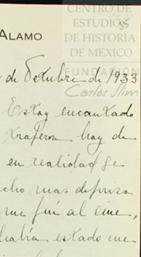 CENTRO DE
ESTUDIOS
DE HISTORIA
DE MEXICO
FUNDACIÓN
Carlos Slim
ALAMO
de Octubre de 1933
Estoy encantado
hay de
en realidad
cho mas de prisa
me fuí al cine,
había estado me